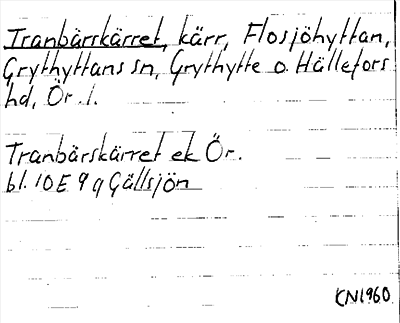 Tranbärskärret, kärr, Flosjöhyttan,
Grythyttans sn, Grythytte o. Hällefors
hd, Ör. l.
Tranbärskärret ek Ör.
bl. 10 E 9 q Gällsjön
KN1960